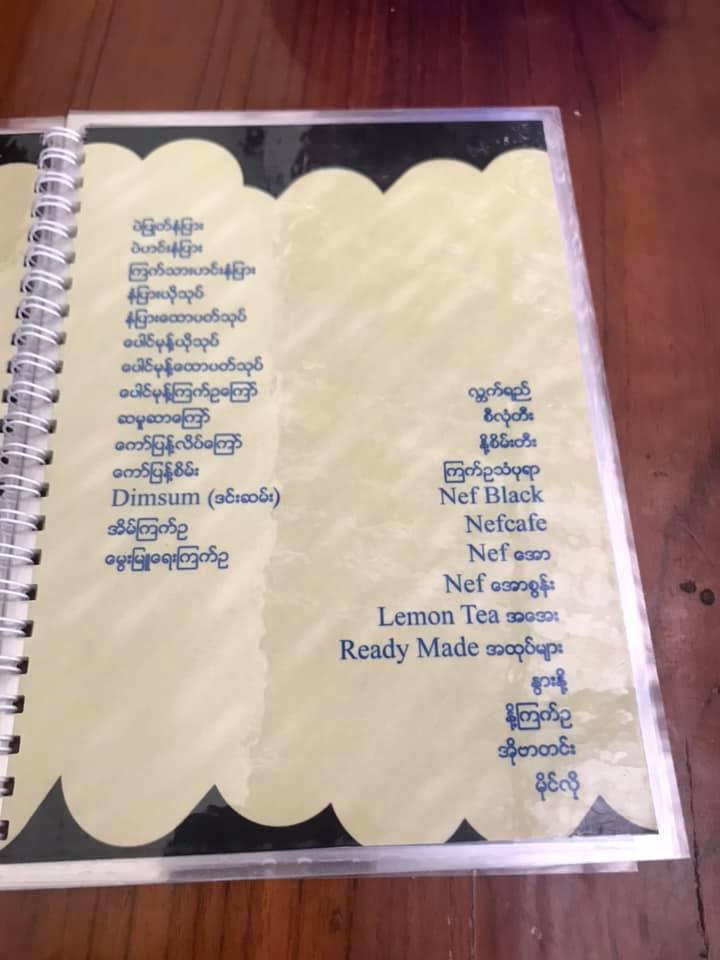 ပဲပြုတ်နံပြား
ပဲဟင်းနံပြား
ကြက်သားဟင်းနံပြား
နံပြားယိုသုပ်
နံပြားထောပတ်သုပ်
ပေါင်မုန့်ယိုသုပ်
ပေါင်မုန့်ထောပတ်သုပ်
ပေါင်မုန့်ကြက်ဥကြော်
ဆမူဆာကြော်
ကော်ပြန့်လိပ်ကြော်
ကော်ပြန့်စိမ်း
Dimsum (ဒင်းဆမ်း)
အိမ်ကြက်ဥ
မွေးမြူရေးကြက်ဥ
လ္ဘက်ရည်
စီလုံတီး
နို့စိမ်းတီး
ကြက်ဥသံပုရာ
Nef Black
Nefcafe
Nef အော
Nef အောစွန်း
Lemon Tea အအေး
Ready Made အထုပ်များ
နွားနို့
နို့ကြက်ဥ
အိုဗာတင်း
မိုင်လို